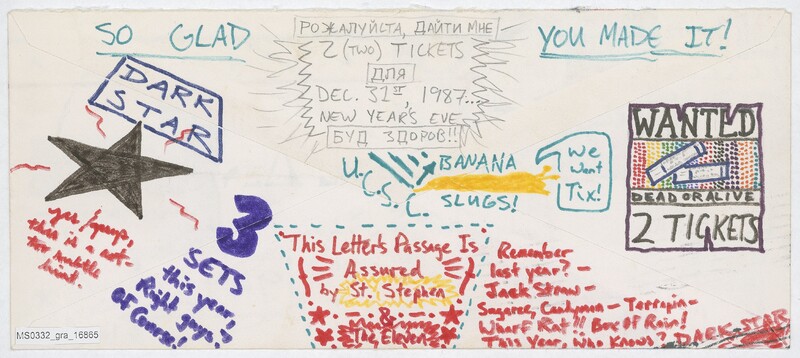 SO GLAD
РОЖАЛУЙСТА, ДАЙТИ МНЕ
2 (TWO) TICKETS
ДЛЯ
DEC. 31st, 1987...
NEW YEAR'S EVE
БУД ЗДОРОВ!!
YOU MADE IT!
DARK
STAR
U.C.S.C.
BANANA
SLUGS!
We
Want
Tix!
WANTED
DEAD OR ALIVE
2 TICKETS
yes / yup,
this is a not-
too humble
hint.
3
SETS
this year,
Right guys?
Of Course!
This Letter's Passage Is
Assured
by St. Stephen
&
The Eleven
Remember
last year? –
Jack Straw –
Sugaree, Candyman – Terrapin –
Wharf Rat!! Box of Rain!
This Year, Who Knows? DARK STAR
MS0332_gra_16865